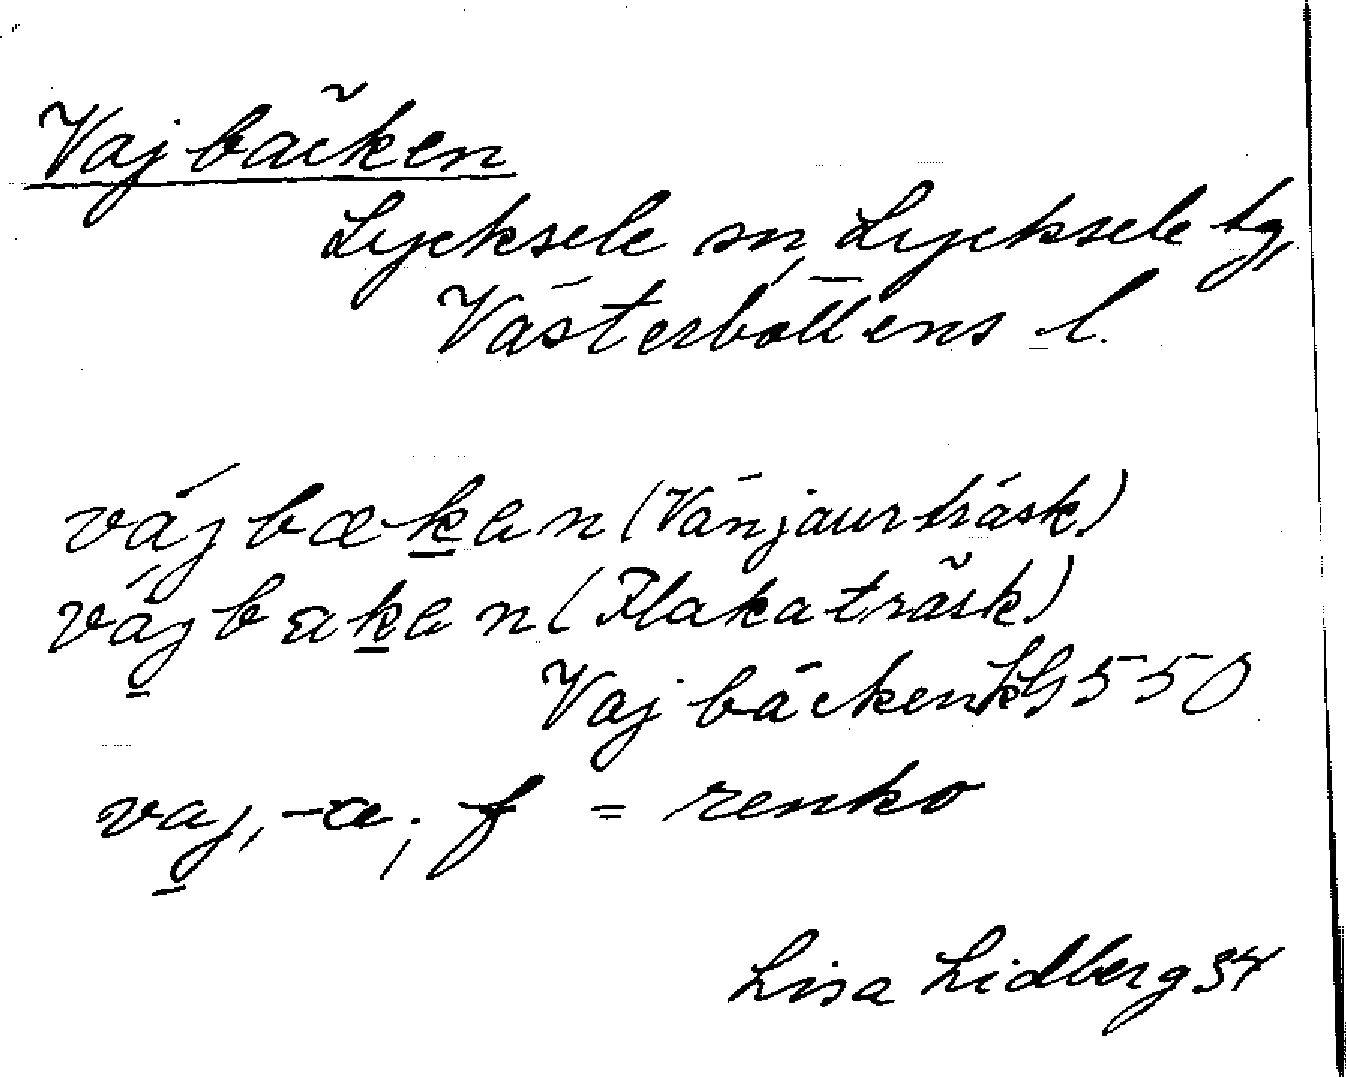 Vajbäcken
Lycksele sn, Lycksele tg,
Västerbottens l.
vájbækan (Vänjaurträsk)
vájbakan (Flakaträsk)
Vajbäcken KG 550
vaj, -a; f = renko
Lisa Lidberg 34